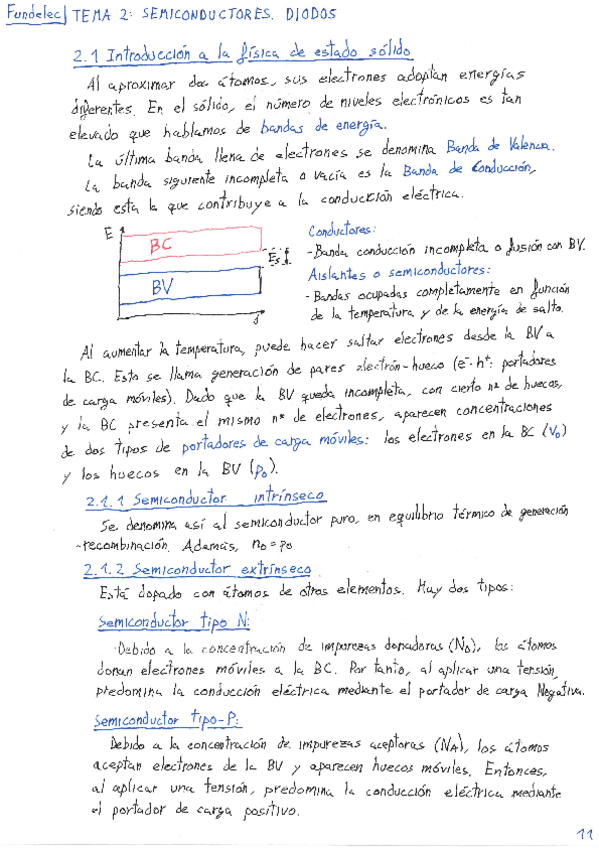 Fundelec TEMA 2: SEMICONDUCTORES. DIODOS
2.1 Introducción a la física de estado sólido
Al aproximar dos átomos, sus electrones adoptan energías
diferentes. En el sólido, el número de niveles electrónicos es tan
elevado que hablamos de bandas de energía.
La última banda llena de electrones se denomina Banda de Valencia.
La banda siguiente incompleta o vacía es la Banda de Conducción,
siendo esta la que contribuye a la conducción eléctrica.
E
BC
Es
BV
Conductores:
- Banda conducción incompleta o fusión con BV.
Aislantes o semiconductores:
- Bandas ocupadas completamente en función
de la temperatura y de la energía de salto.
Al aumentar la temperatura, puede hacer saltar electrones desde la BV a
la BC. Esto se llama generación de pares electrón-hueco (e⁻ h⁺: portadores
de carga móviles). Dado que la BV queda incompleta, con cierto nº de huecos,
y la BC presenta el mismo nº de electrones, aparecen concentraciones
de dos tipos de portadores de carga móviles: los electrones en la BC (V₀)
y los huecos en la BV (p₀).
2.1.1 Semiconductor intrínseco
Se denomina así al semiconductor puro, en equilibrio térmico de generación
-recombinación. Además, n₀ = p₀
2.1.2 Semiconductor extrínseco
Está dopado con átomos de otros elementos. Hay dos tipos:
Semiconductor tipo N:
Debido a la concentración de impurezas donadoras (N_D), los átomos
donan electrones móviles a la BC. Por tanto, al aplicar una tensión,
predomina la conducción eléctrica mediante el portador de carga Negativa.
Semiconductor tipo-P:
Debido a la concentración de impurezas aceptoras (N_A), los átomos
aceptan electrones de la BV y aparecen huecos móviles. Entonces,
al aplicar una tensión, predomina la conducción eléctrica mediante
el portador de carga positivo.
11